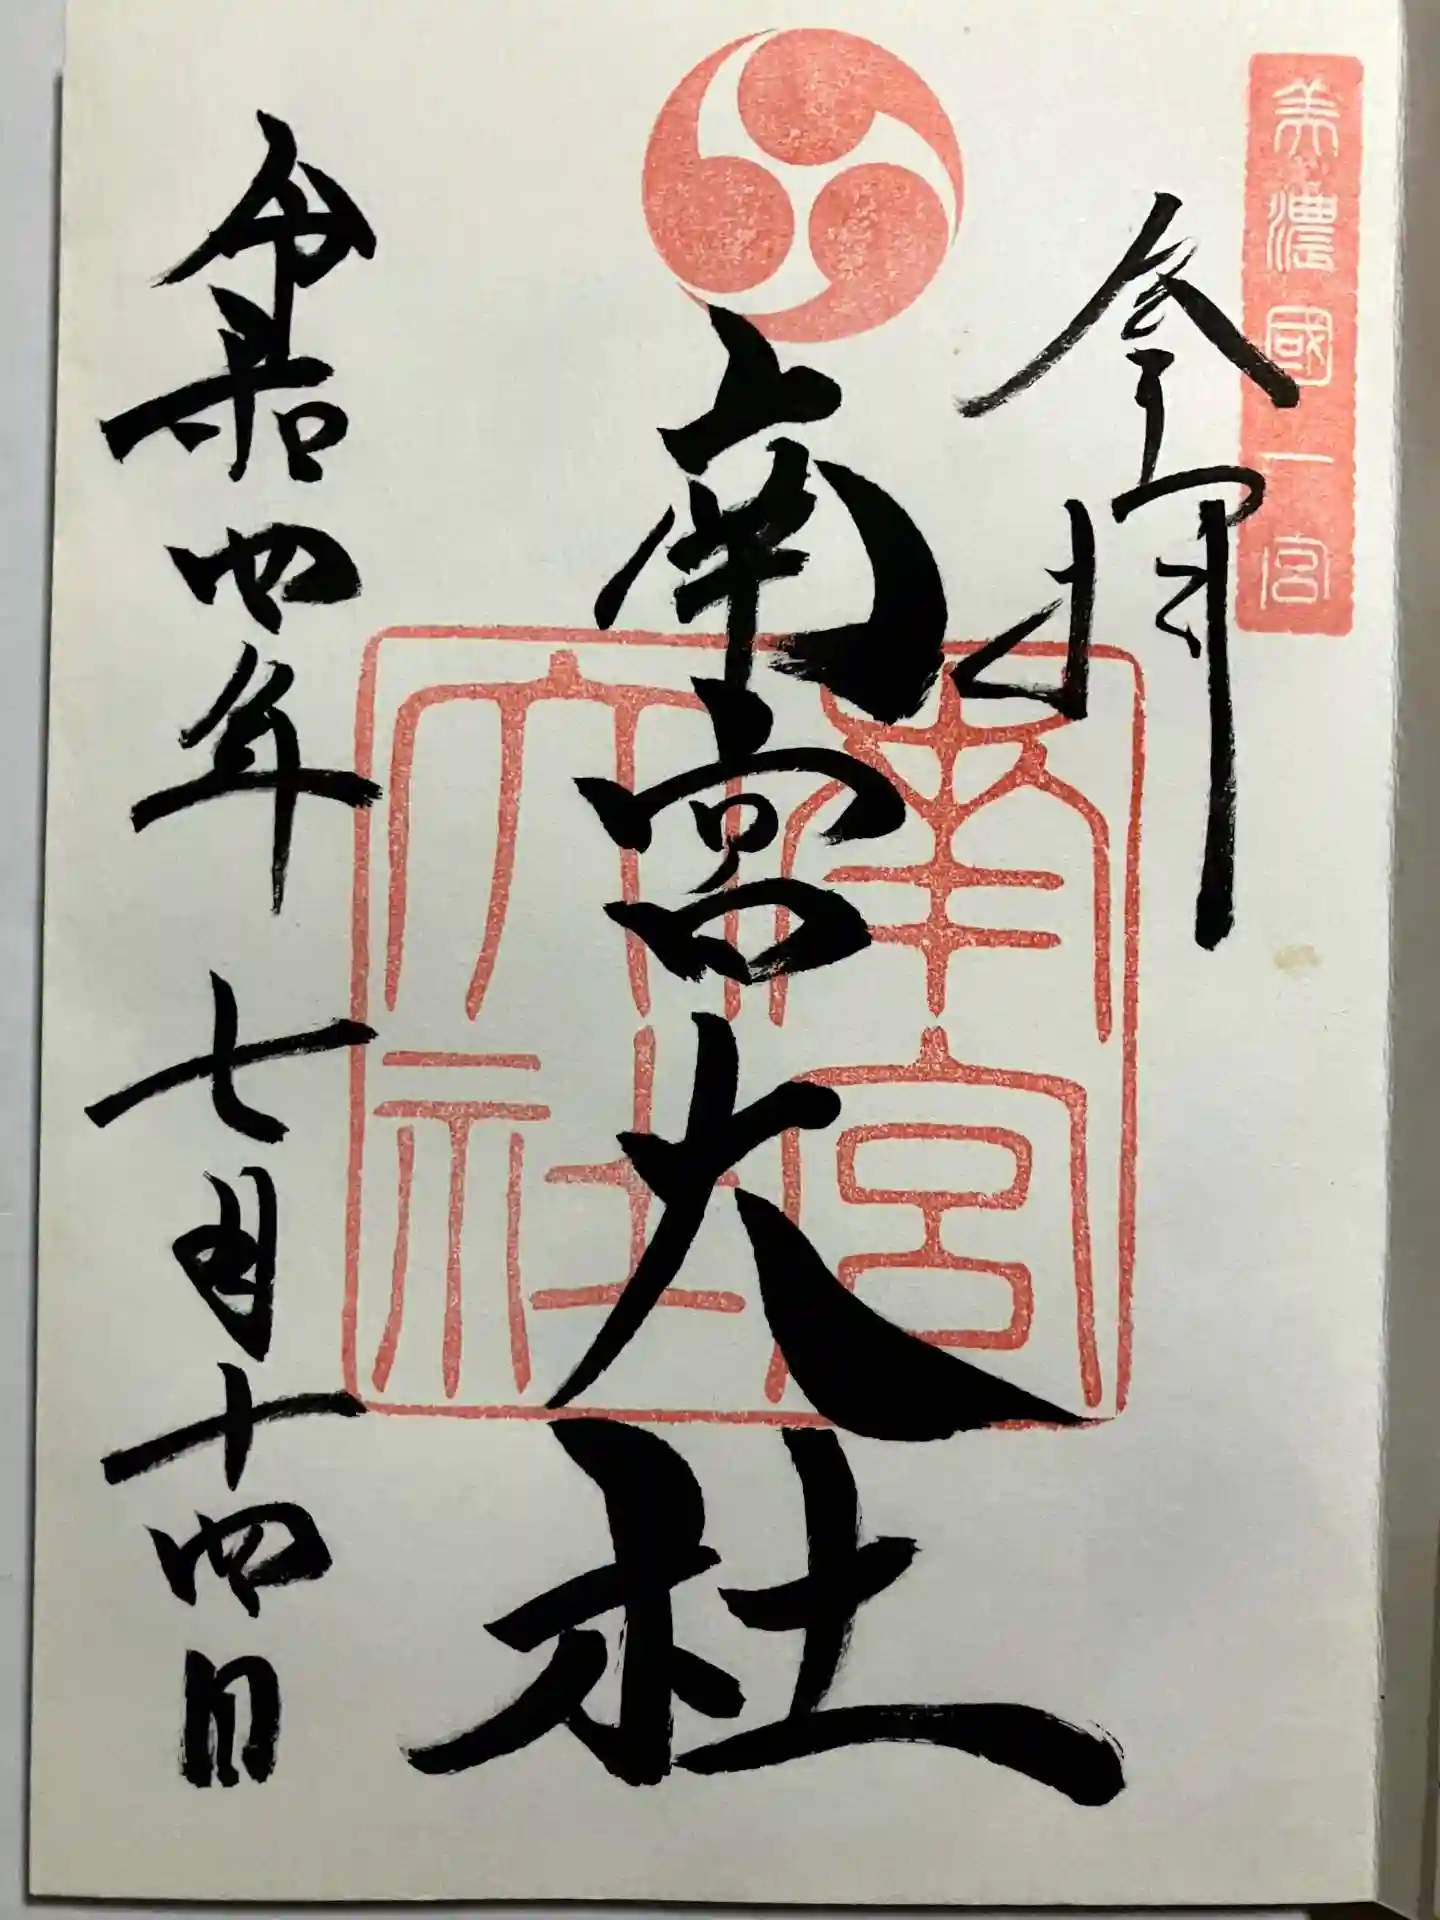 美濃國一宮
参拝
南宮大社
南宮
大社
令和四年七月十四日